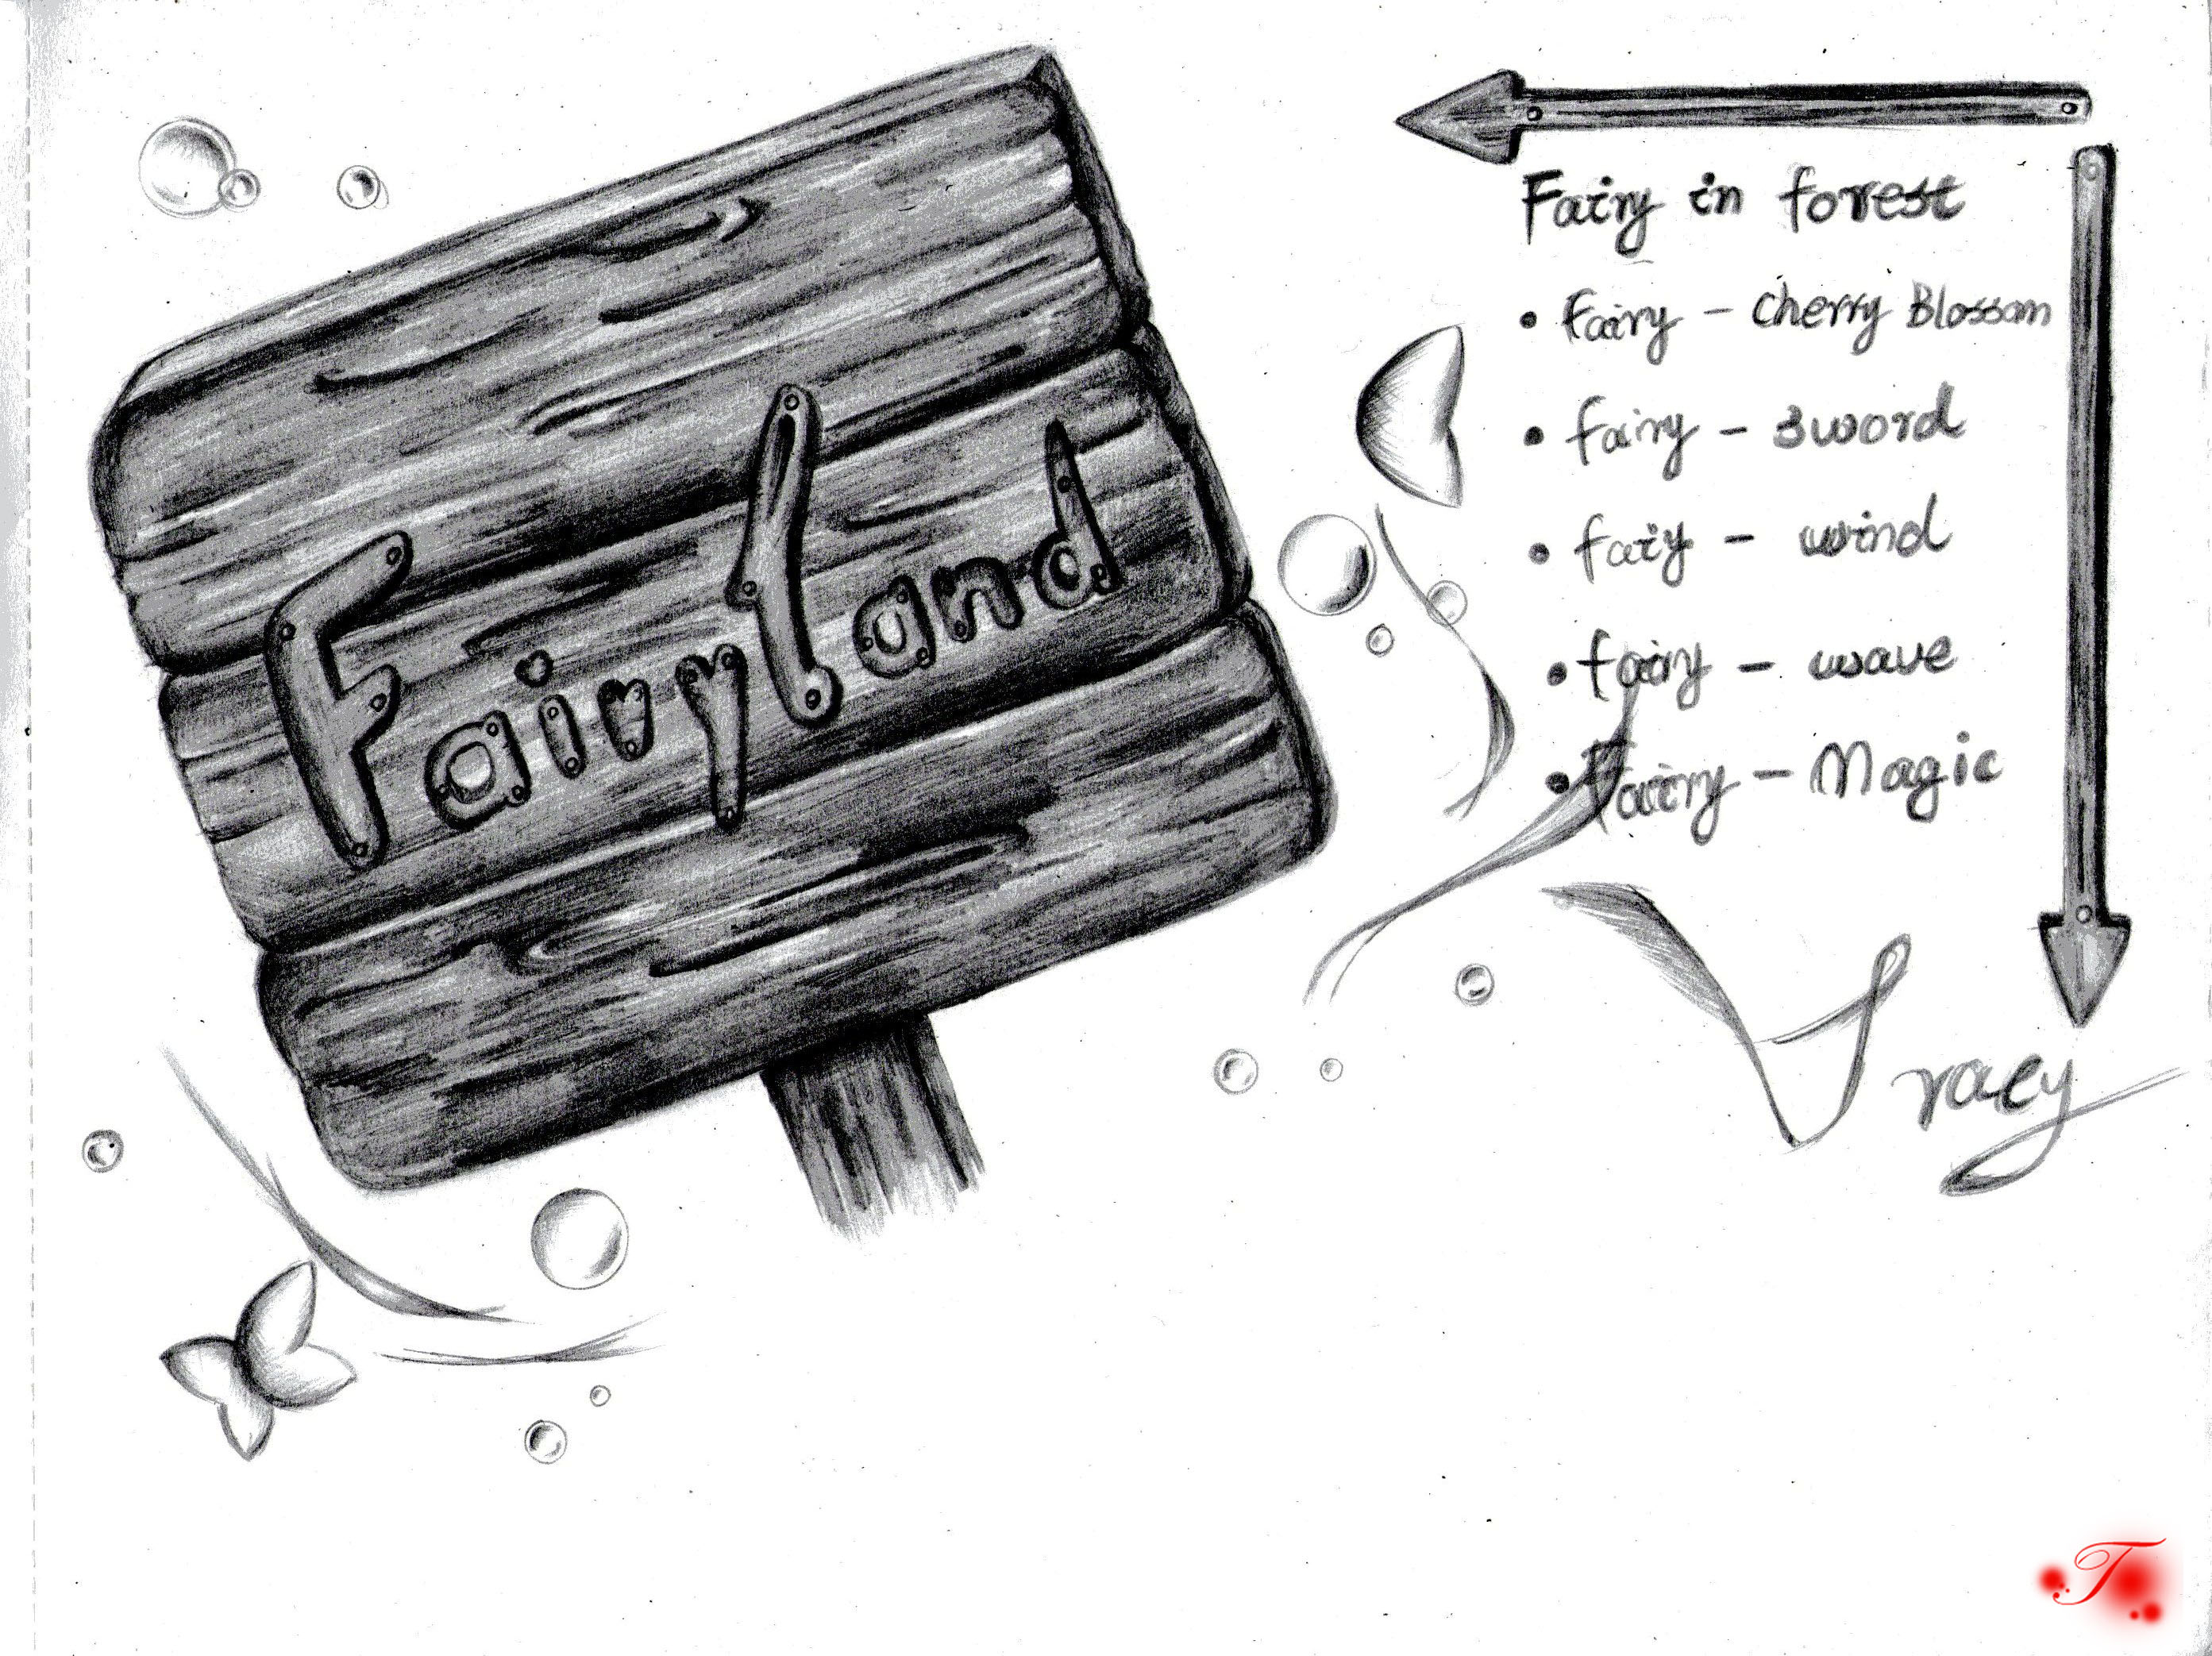 Fairyland
Fairy in forest
• Fairy - Cherry Blossom
• fairy - sword
• faiy - wind
• fairy - wave
• Fairy - Magic
Tracy
T